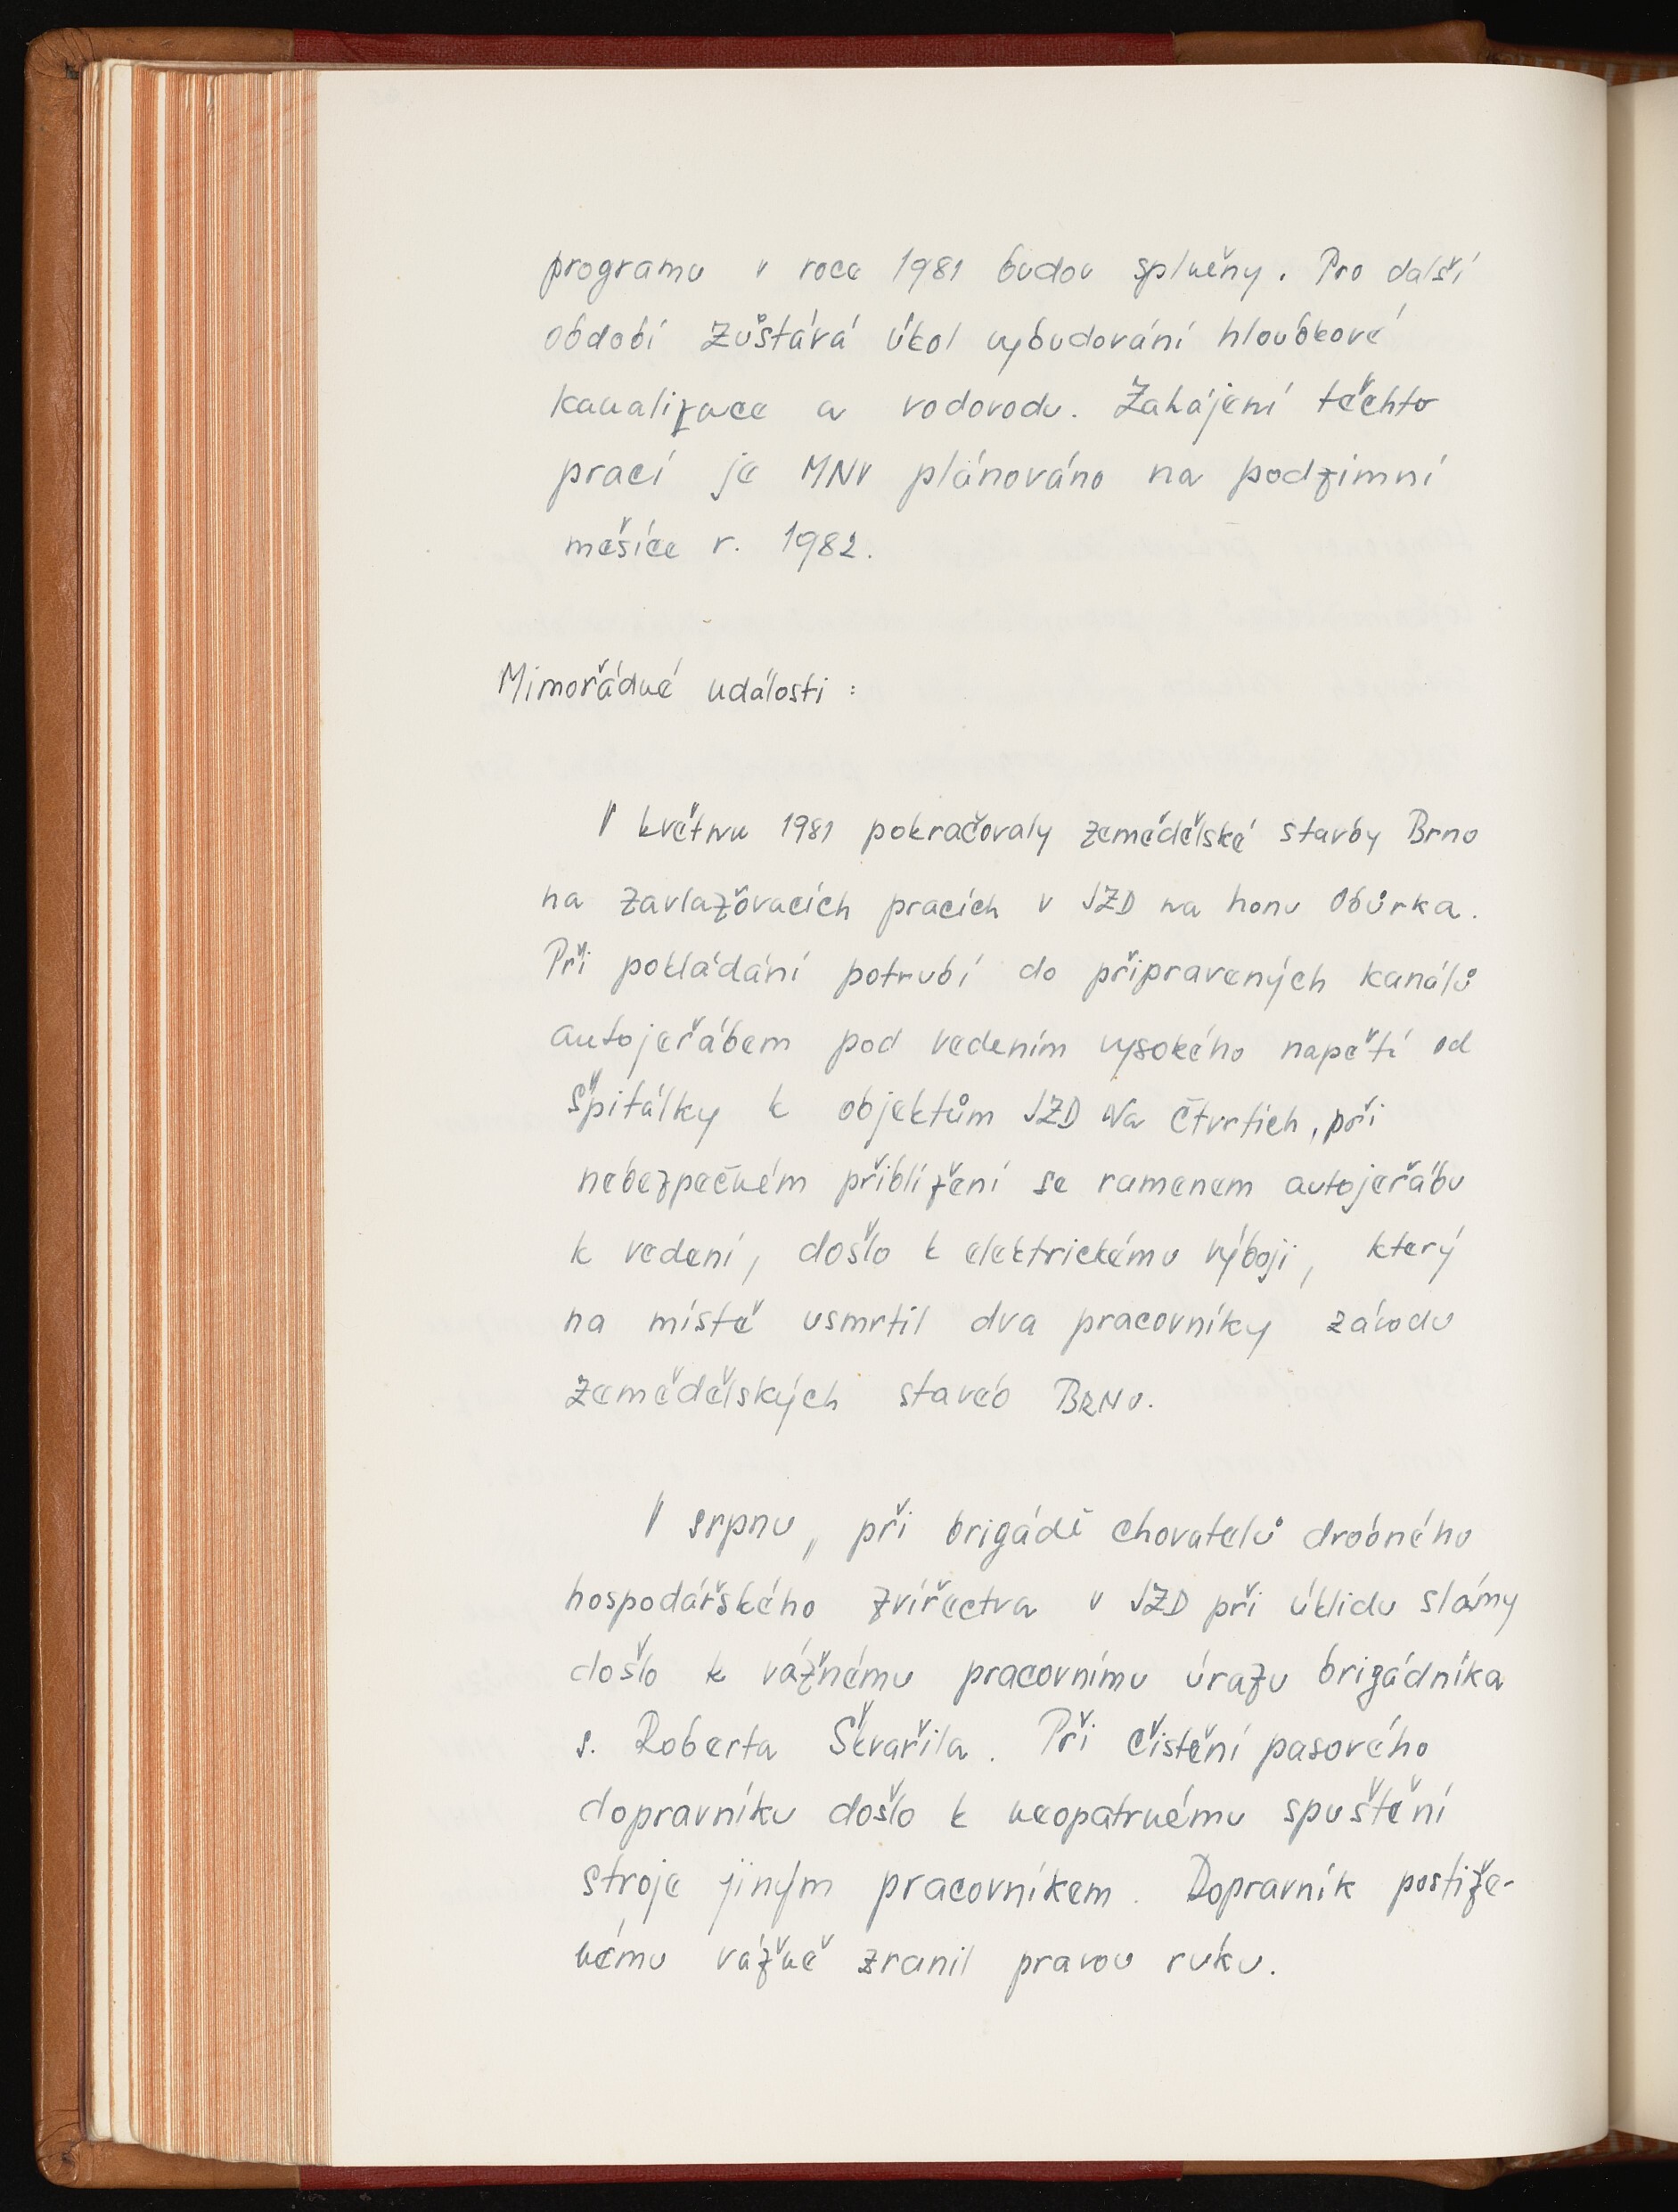 programu v roce 1981 budou splněny. Pro další
období zůstává úkol vybudování hloubkové
kanalizace a vodovodu. Zahájení těchto
prací je MNV plánováno na podzimní
měsíce r. 1982.
Mimořádné události :
V květnu 1981 pokračovaly zemědělské stavby Brno
na zavlažovacích pracích v JZD na honu Obůrka.
Při pokládání potrubí do připravených kanálů
autojeřábem pod vedením vysokého napětí od
Špitálky k objektům JZD Na Čtvrtích, při
nebezpečném přiblížení se ramenem autojeřábu
k vedení, došlo k elektrickému výboji, který
na místě usmrtil dva pracovníky závodu
zemědělských staveb BRNO.
V srpnu, při brigádě chovatelů drobného
hospodářského zvířectva v JZD při úklidu slámy
došlo k vážnému pracovnímu úrazu brigádníka
s. Roberta Škvařila. Při čištění pasového
dopravníku došlo k neopatrnému spuštění
stroje jiným pracovníkem. Dopravník postiže-
nému vážně zranil pravou ruku.